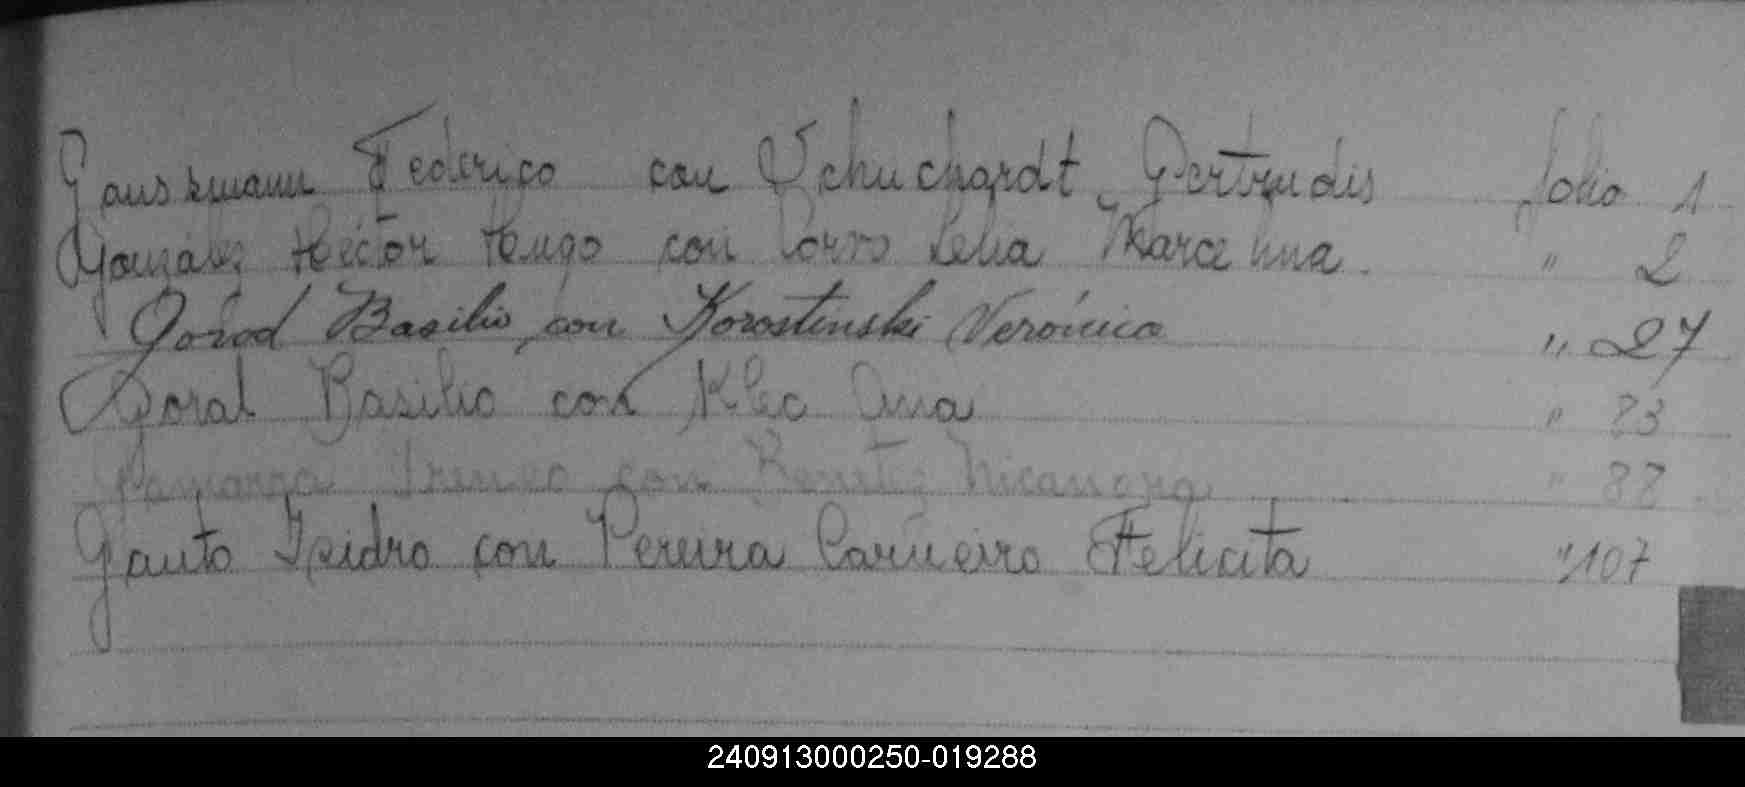 Gauszmann Federico con Schuchardt Gertrudis folio 1
González Héctor Hugo con Porro Lelia Marcelina. " 2
Gorod Basilio con Korostinski Verónica " 27
Goral Basilio con Klec Ana " 73
Gamarra Irineo con Benitez Nicanora " 88
Gauto Isidro con Pereira Carneiro Felicita " 107
240913000250-019288